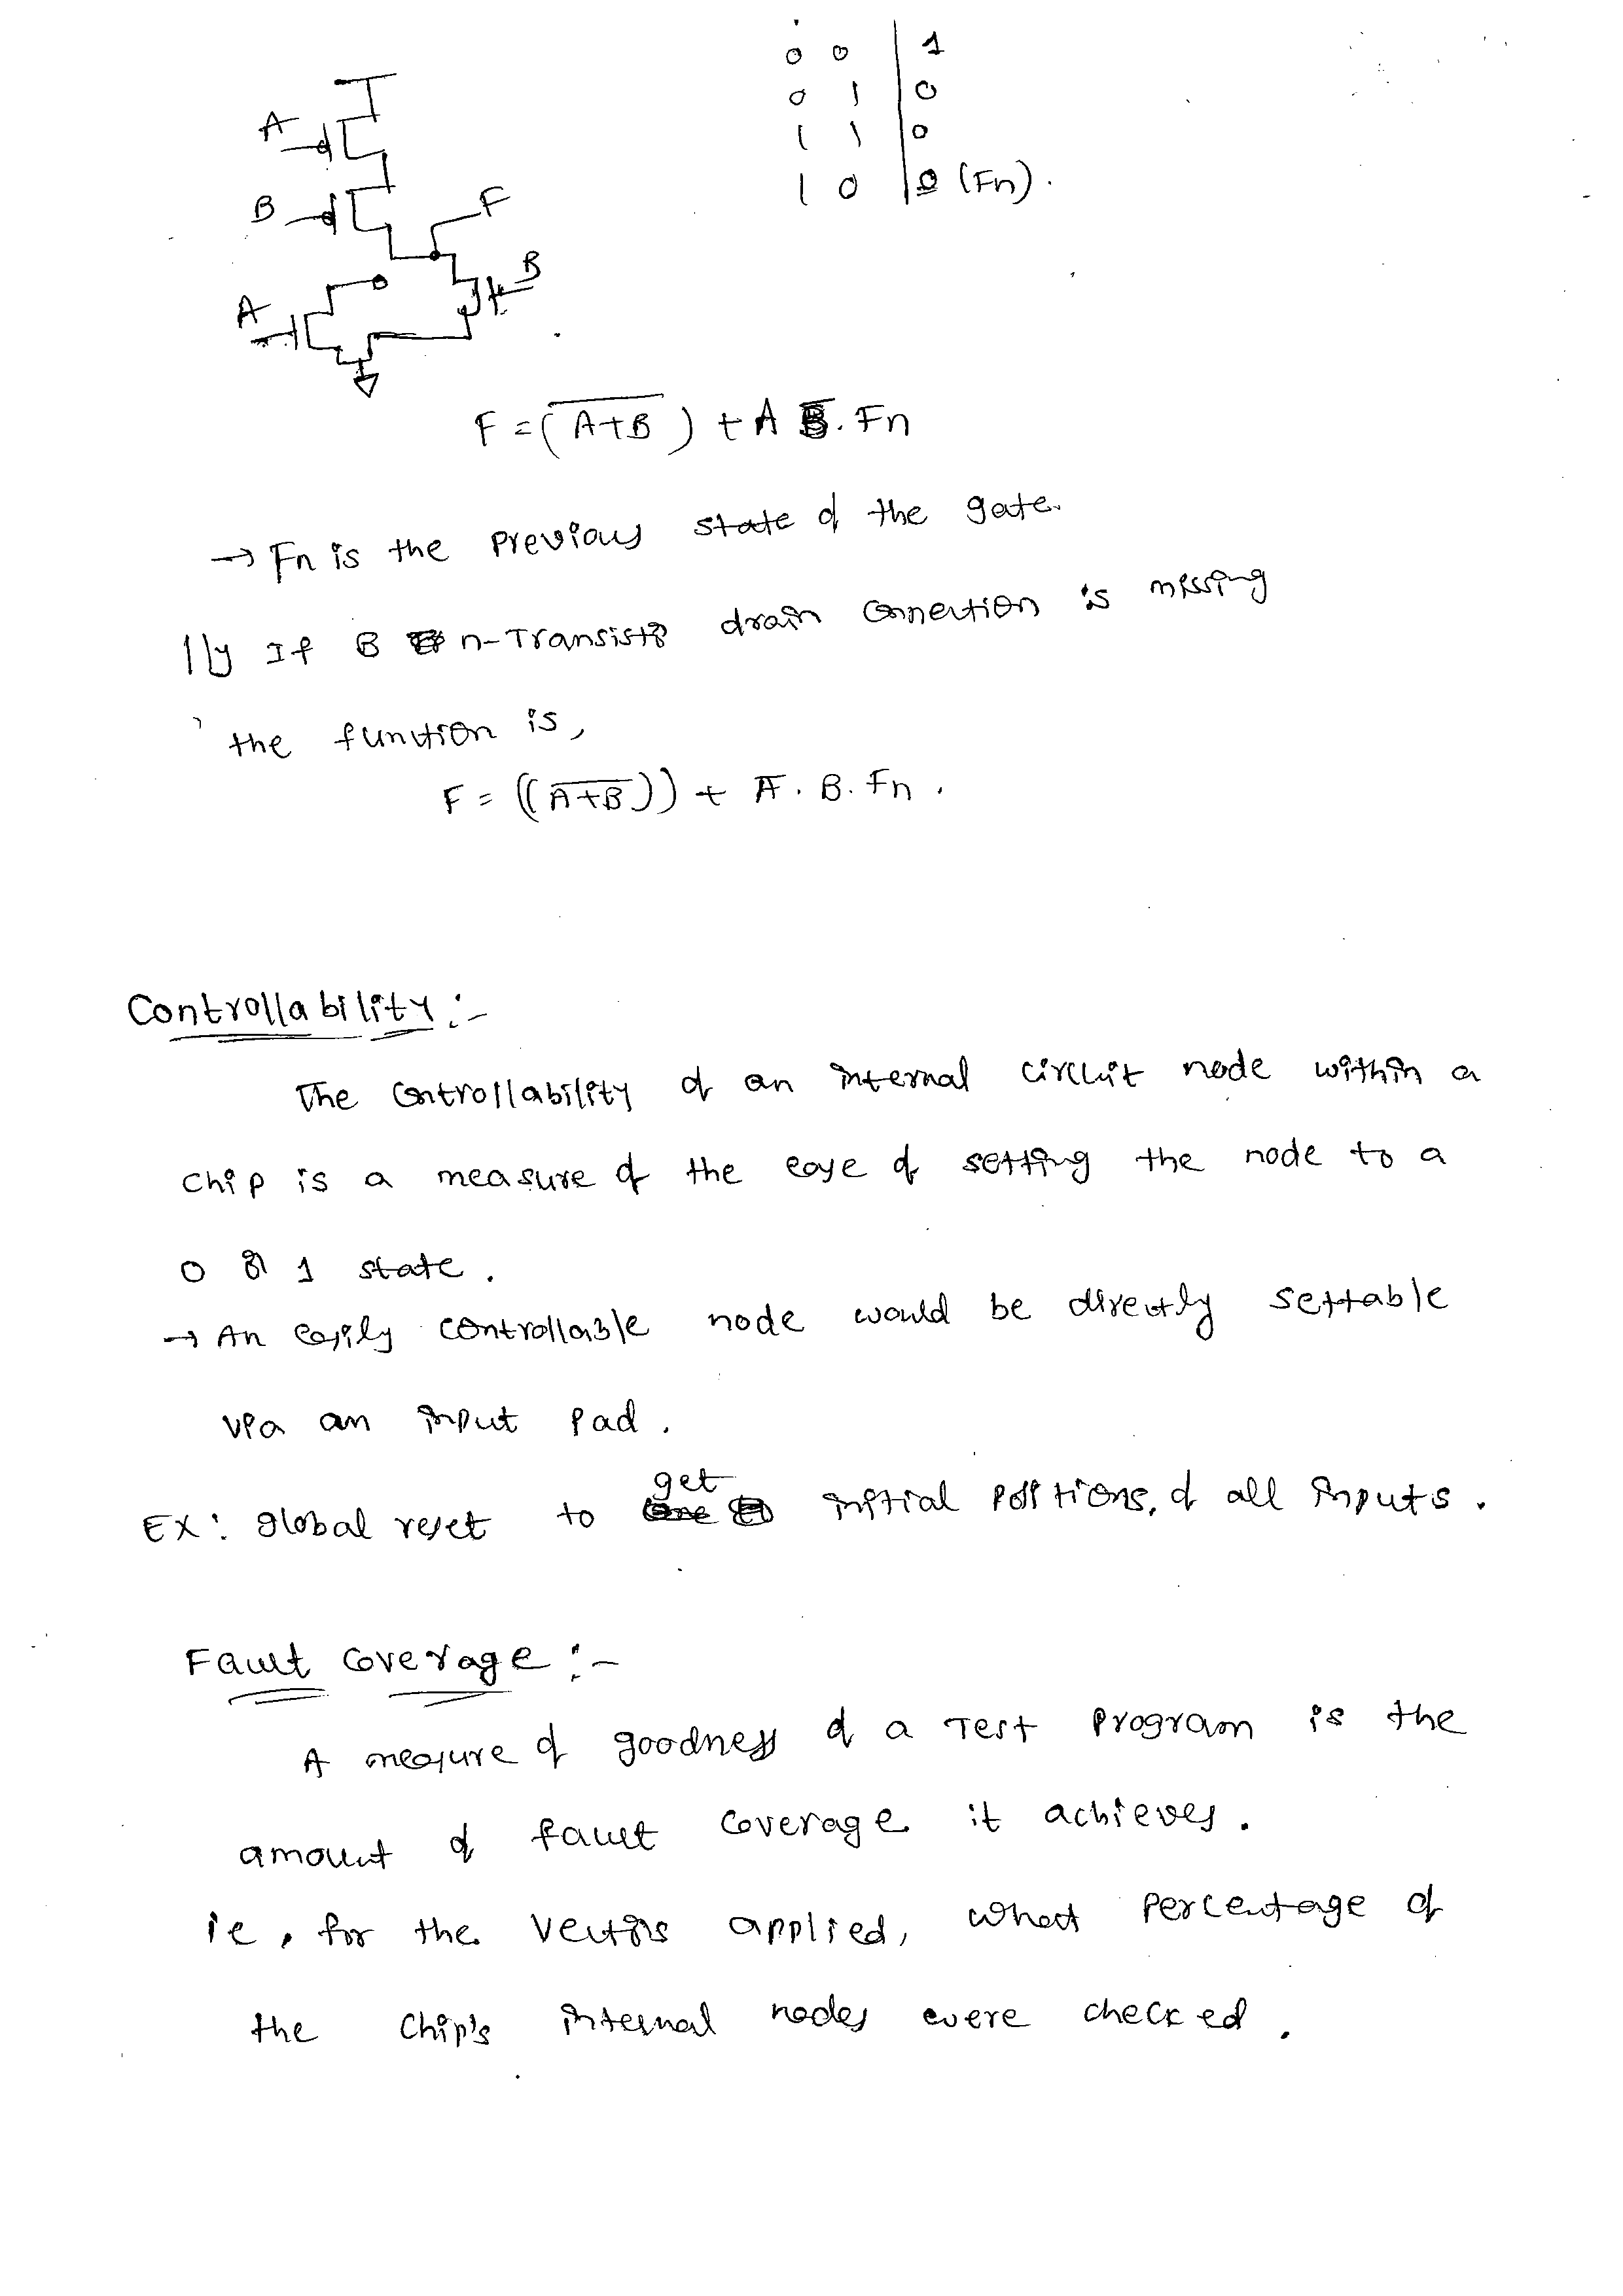 0 0 1
0 1 0
1 1 0
1 0 0 (Fn).
A
B
F
B
A
F = (A̅+̅B̅) + A B̅. Fn
→ Fn is the previous state of the gate.
llly If B n-Transistor drain connection is missing
the function is,
F = ((A̅+̅B̅)) + A̅. B. Fn.
Controllability :-
The controllability of an internal circuit node within a
chip is a measure of the ease of setting the node to a
0 or 1 state.
→ An easily controllable node would be directly settable
via an input pad.
Ex: global reset to get initial positions, of all inputs.
Fault coverage :-
A measure of goodness of a Test program is the
amount of fault coverage it achieves.
ie, for the vectors applied, what percentage of
the chip's internal nodes were checked.